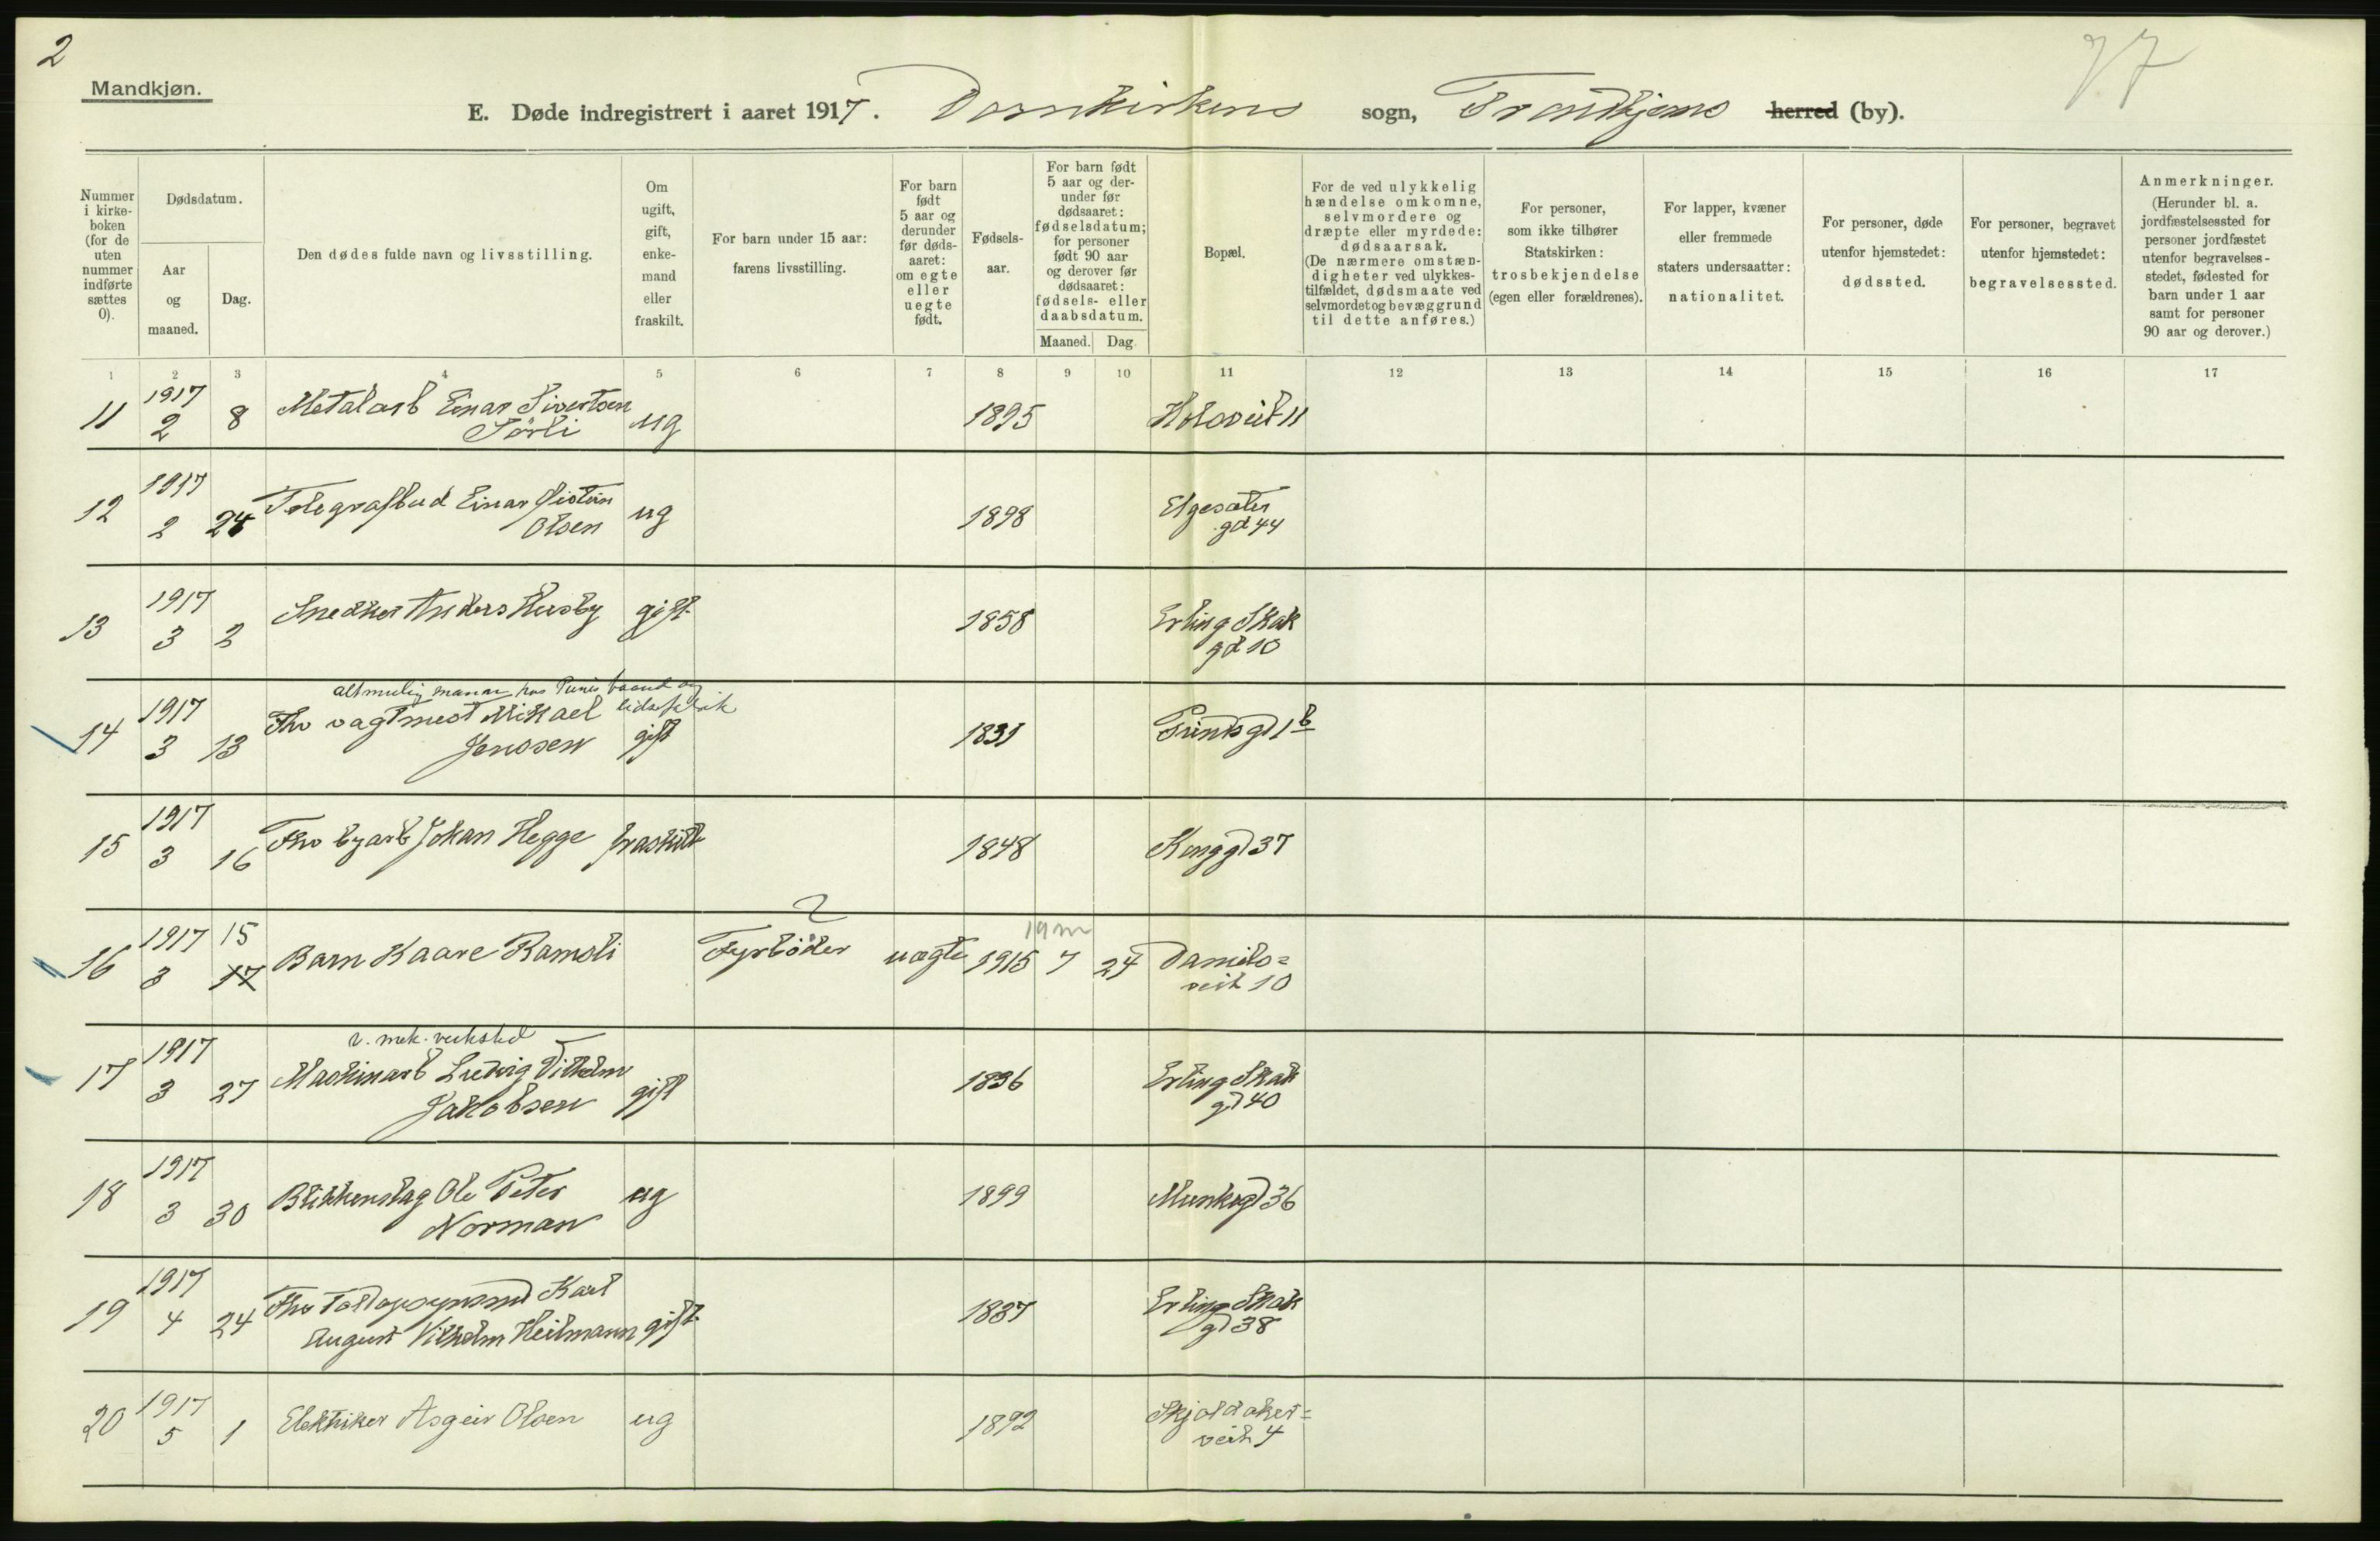 2
77
Mandkjøn.
E. Døde indregistrert i aaret 1917. Domkirkens sogn, Trondhjems herred (by).
Nummer i kirkeboken (for de uten nummer indførte sættes 0).
Dødsdatum.
Aar og maaned.
Dag.
Den dødes fulde navn og livsstilling.
Om ugift, gift, enkemand eller fraskilt.
For barn under 15 aar: farens livsstilling.
For barn født 5 aar og derunder før dødsaaret: om egte eller uegte født.
Fødselsaar.
For barn født 5 aar og derunder før dødsaaret: fødselsdatum; for personer født 90 aar og derover før dødsaaret: fødsels- eller daabsdatum.
Maaned. Dag.
Bopæl.
For de ved ulykkelig hændelse omkomne, selvmordere og dræpte eller myrdede: dødsaarsak. (De nærmere omstændigheter ved ulykkestilfældet, dødsmaate ved selvmordet og bevæggrund til dette anføres.)
For personer, som ikke tilhører Statskirken: trosbekjendelse (egen eller forældrenes).
For lapper, kvæner eller fremmede staters undersaatter: nationalitet.
For personer, døde utenfor hjemstedet: dødssted.
For personer, begravet utenfor hjemstedet: begravelsessted.
Anmerkninger. (Herunder bl. a. jordfæstelsessted for personer jordfæstet utenfor begravelsesstedet, fødested for barn under 1 aar samt for personer 90 aar og derover.)
1 2 3 4 5 6 7 8 9 10 11 12 13 14 15 16 17
11 1917 2 8 Metalarb Einar Sivertsen ug 1895
Sørli
12 1917 2 24 Telegrafbud Einar ug 1898 Elgesæter
Olsen gd 44
13 1917 3 2 Snedker Anders Husby gift 1858 Erling Skak
gd 10
altmulig mann hos
14 1917 3 13 Fhv vagtmest Mikael gift 1831 Prinsgd 1b
Jenssen
15 1917 3 16 Fhv byarb Johan Hegge fraskilt 1848 Kongg 37
2
19 m
16 1917 3 15 17 Barn Kaare Ramsli Fyrbøder uægte 1915 7 24
veit 10
v. mek. verksted
17 1917 3 27 Maskinarb Ludvig Vilhelm gift 1836 Erling Skak
Jakobsen gd 40
18 1917 3 30 Blikkenslag Ole Peter ug 1899 Munkegd 36
Norman
19 1917 4 24 Fhv Toldopsynsmd Karl 1837 Erling Skak
August Vilhelm Heilmann gift gd 38
20 1917 5 1 Elektriker Asgeir Olsen ug 1892 Skjoldaker=
veit 4